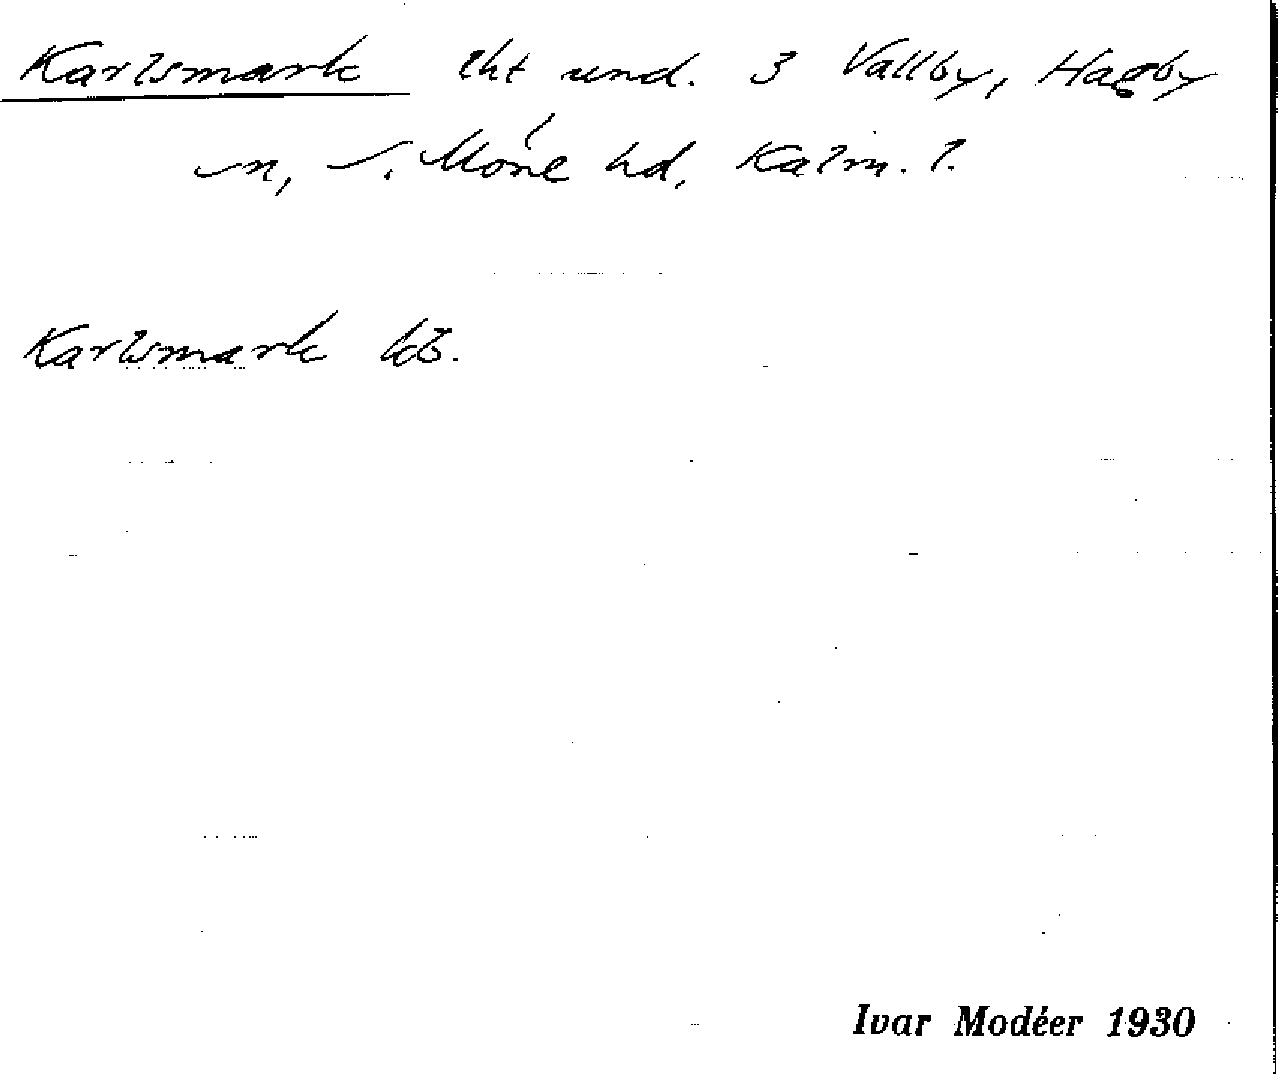 Karlsmark lht und. 3 Vallby, Hagby
sn, S. Möre hd, Kalm. l.
Karlsmark kb.
Ivar Modéer 1930